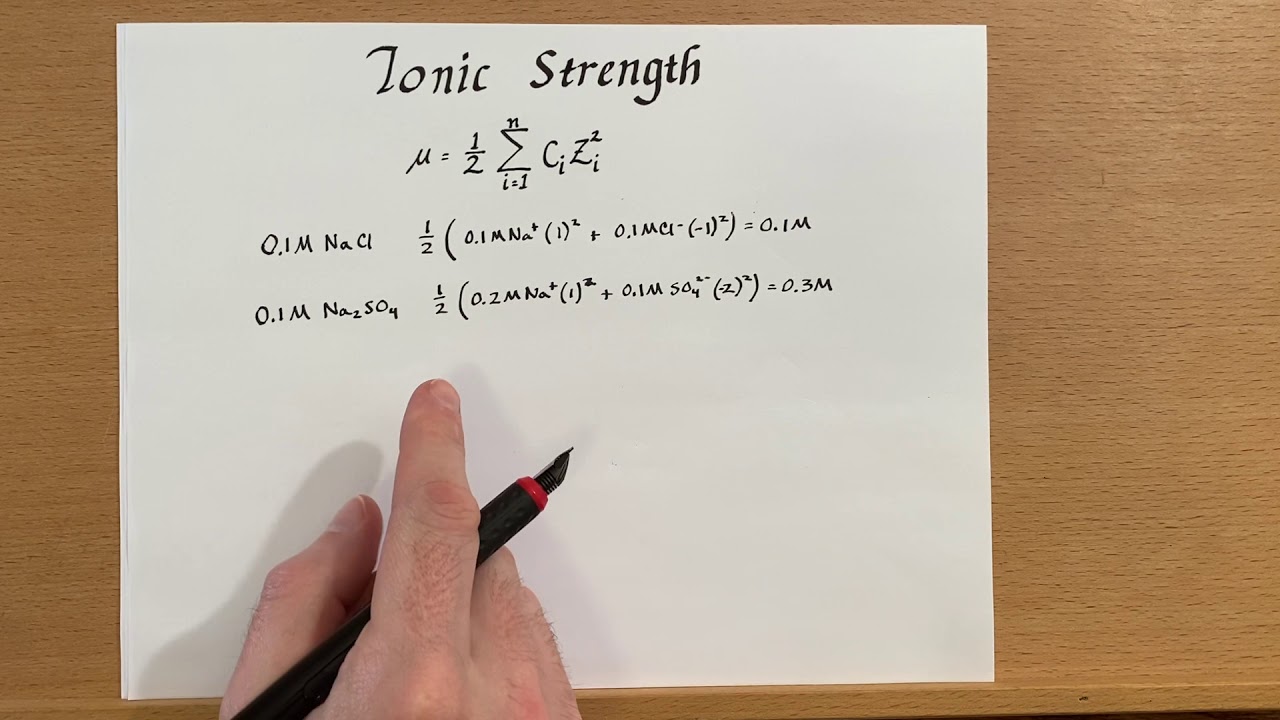 Ionic Strength
μ = 1/2 Σ_{i=1}^{n} C_i Z_i^2
0.1M NaCl 1/2 ( 0.1M Na⁺ (1)² + 0.1M Cl⁻ (-1)²) = 0.1M
0.1M Na₂SO₄ 1/2 (0.2M Na⁺ (1)² + 0.1M SO₄²⁻ (-2)²) = 0.3M